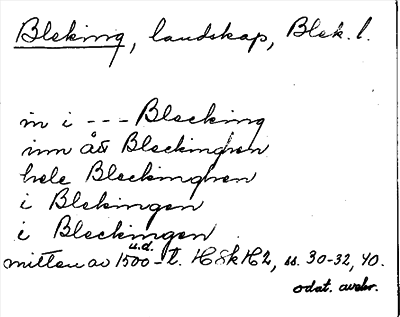 Bleking, landskap, Blek. l.
in i --- Blecking
inn åt Bleckinghen
hele Bleckinghen
i Blekingen
i Bleckingen
u.d.
mitten av 1500-t. HSkH2, ss. 30-32, 40.
odat. avskr.